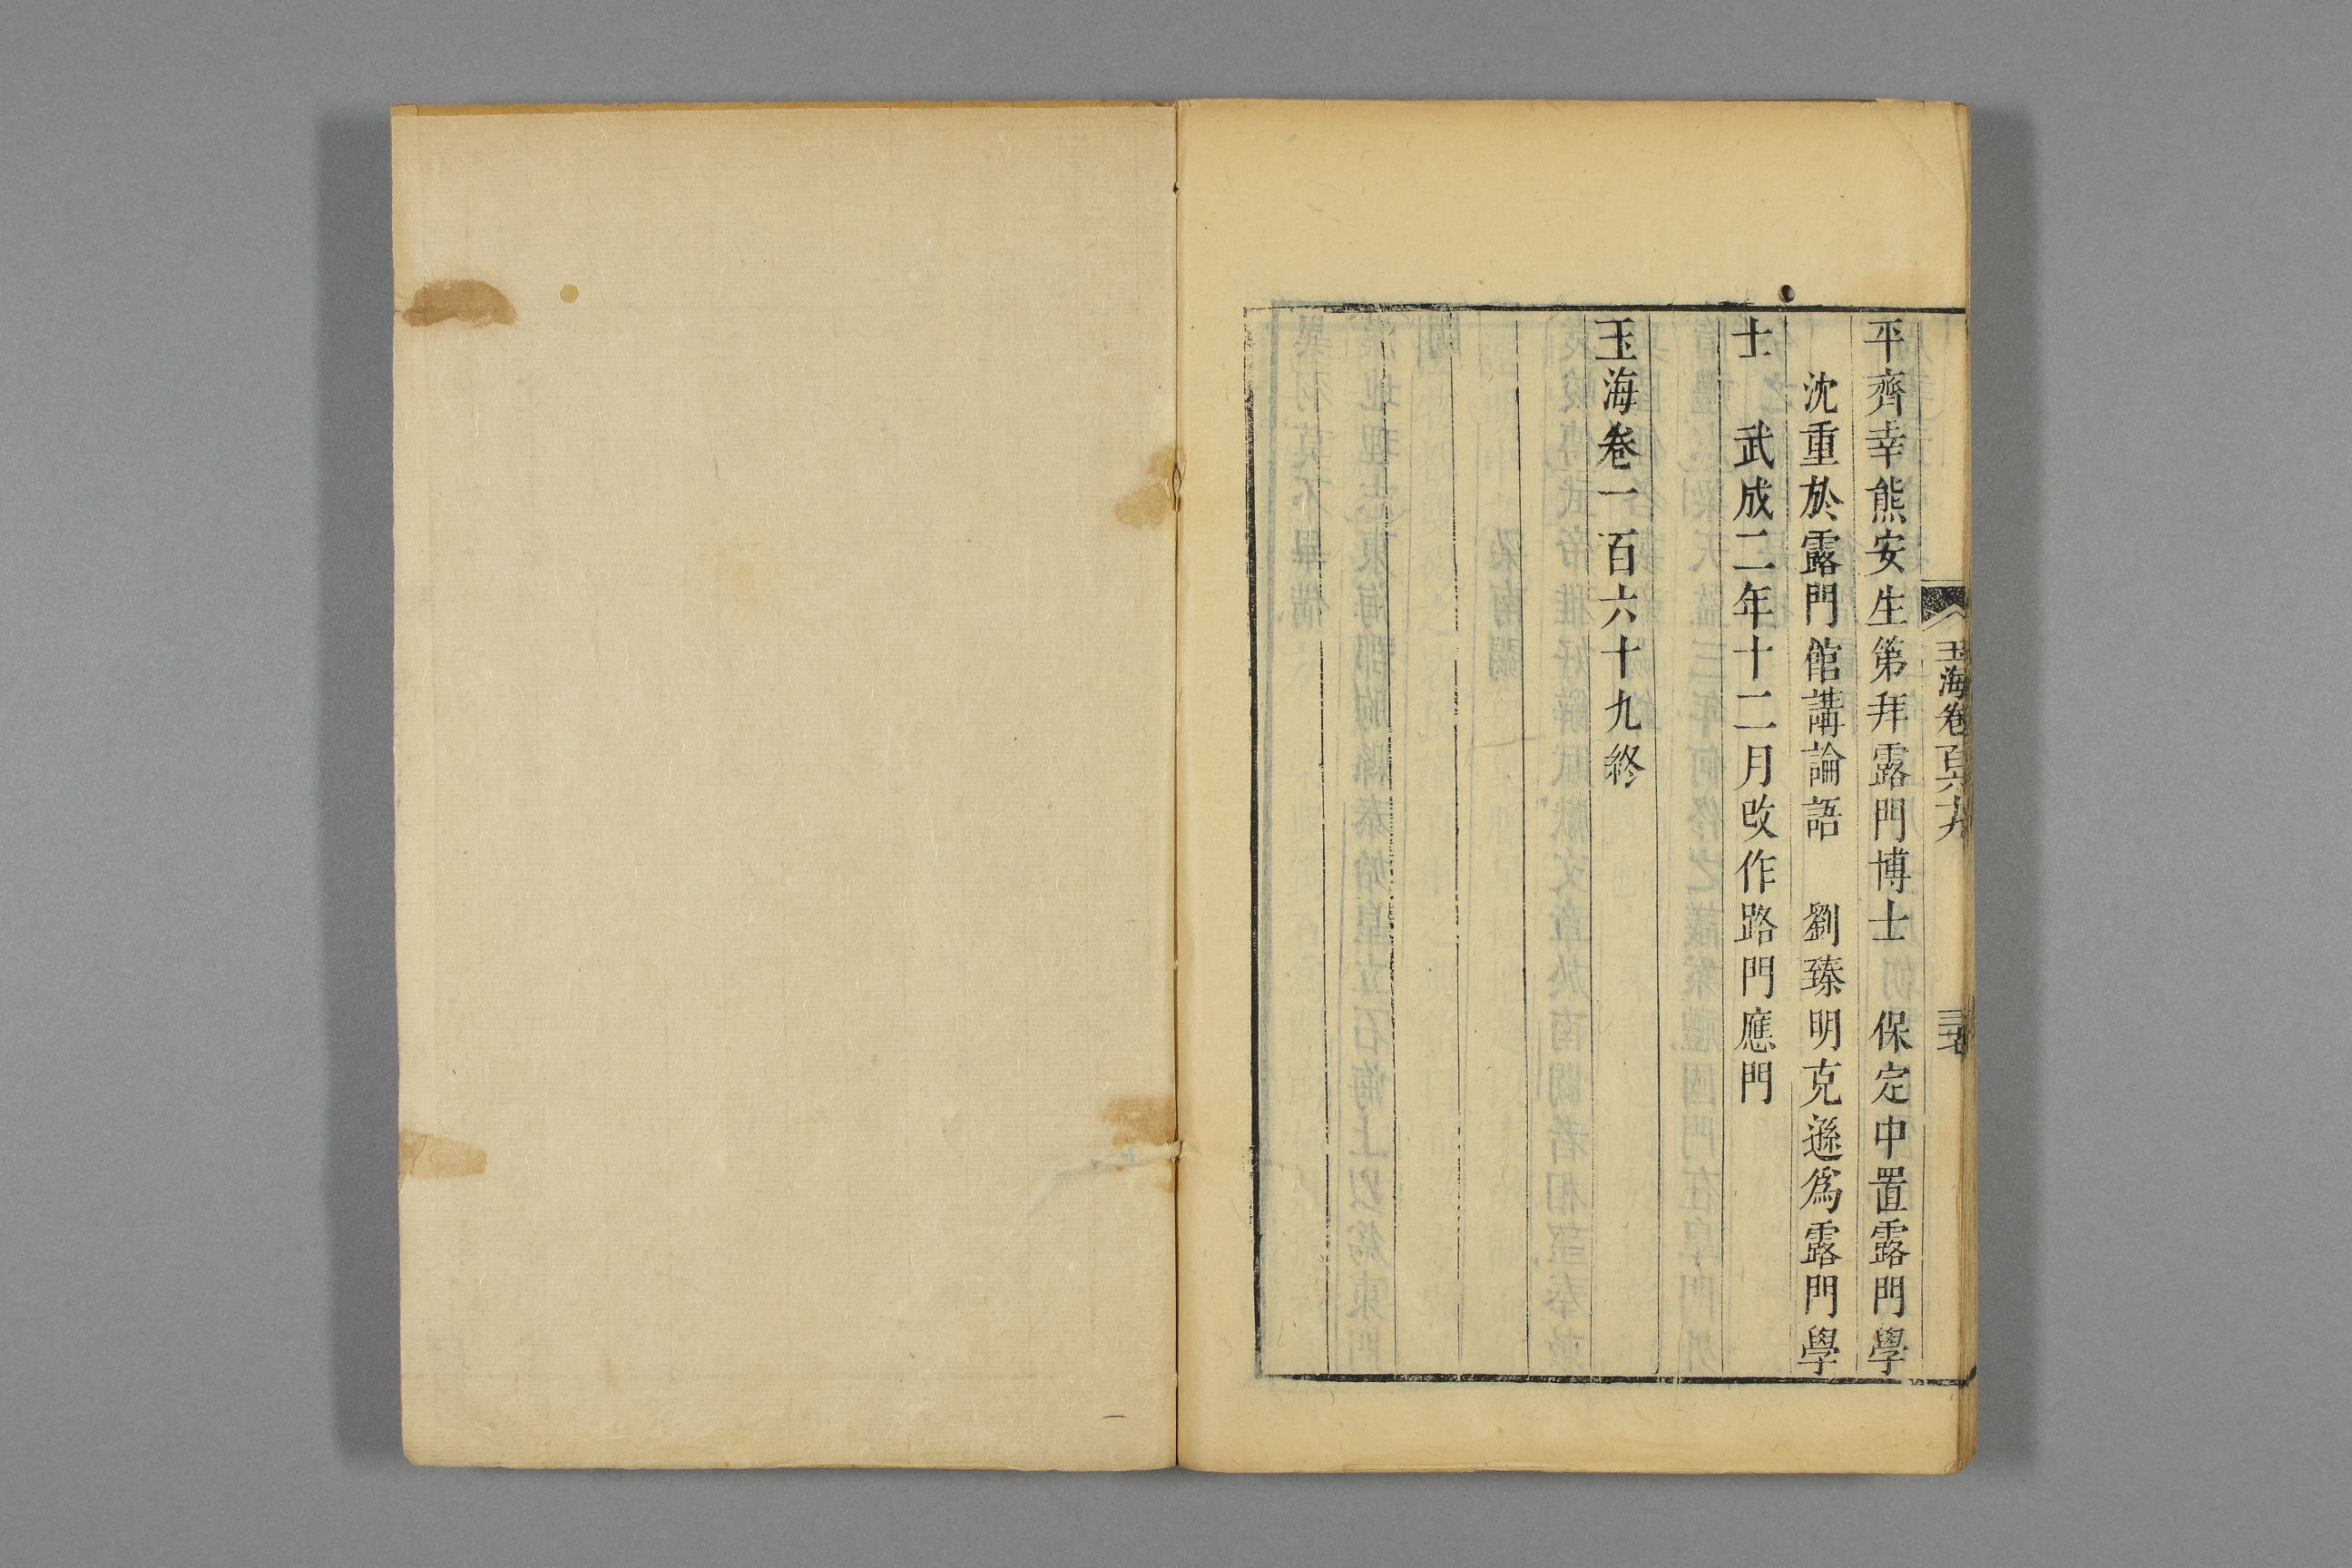 平齊幸熊安生第拜露門博士　保定中置露門學
沈重於露門館講論語　劉臻明克遜為露門學
士　武成二年十二月改作路門應門
玉海卷一百六十九終
玉海卷百六十九
三十七